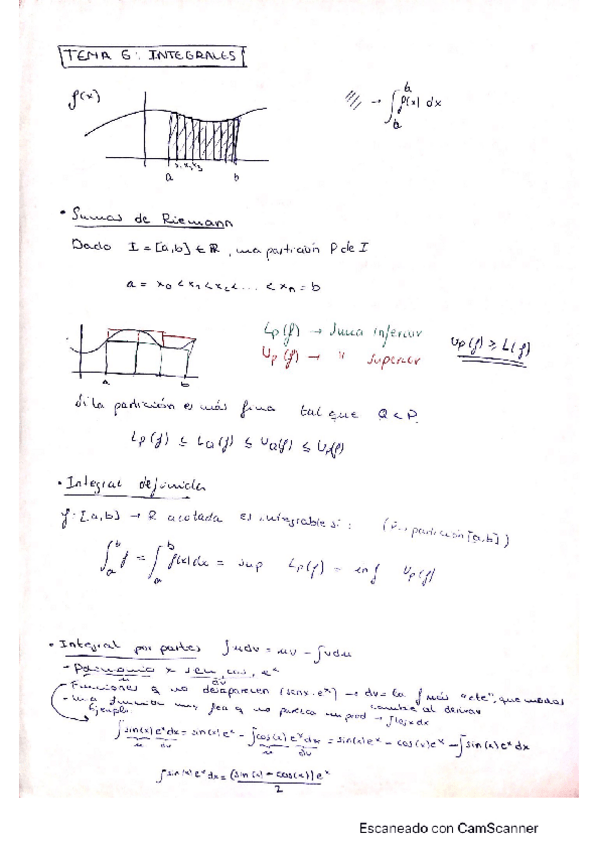 TEMA 6: INTEGRALES
f(x)
/// → ∫ₐᵇ f(x) dx
x₁ x₂ x₃
a b
• Sumas de Riemann
Dado I = [a,b] ∈ ℝ, una partición P de I
a = x₀ < x₁ < x₂ < ... < xₙ = b
Lp(f) → Suma inferior
Up(f) → " superior
Up(f) ≥ L(f)
a b
Si la partición es más fina tal que Q < P.
Lp(f) ≤ LQ(f) ≤ UQ(f) ≤ Up(f)
• Integral definida
f: [a,b] → R acotada es integrable si: partición [a,b])
∫ₐᵇ f = ∫ₐᵇ f(x) dx = sup Lp(f) = inf Up(f)
• Integral por partes ∫u dv = uv − ∫v du
- Polinomio x sen, cos, eˣ
u dv
- Funciones q no desaparecen (senx·eˣ) → dv = la f más que menos
cambie al derivar
- una función muy fea q no parezca un prod → ∫ log x dx
Ejemplo:
∫ sin(x) eˣ dx = sin(x) eˣ − ∫ cos(x) eˣ dx = sin(x) eˣ − cos(x) eˣ − ∫ sin(x) eˣ dx
u dv u dv
∫ sin(x) eˣ dx = (sin(x) − cos(x)) eˣ
2
Escaneado con CamScanner